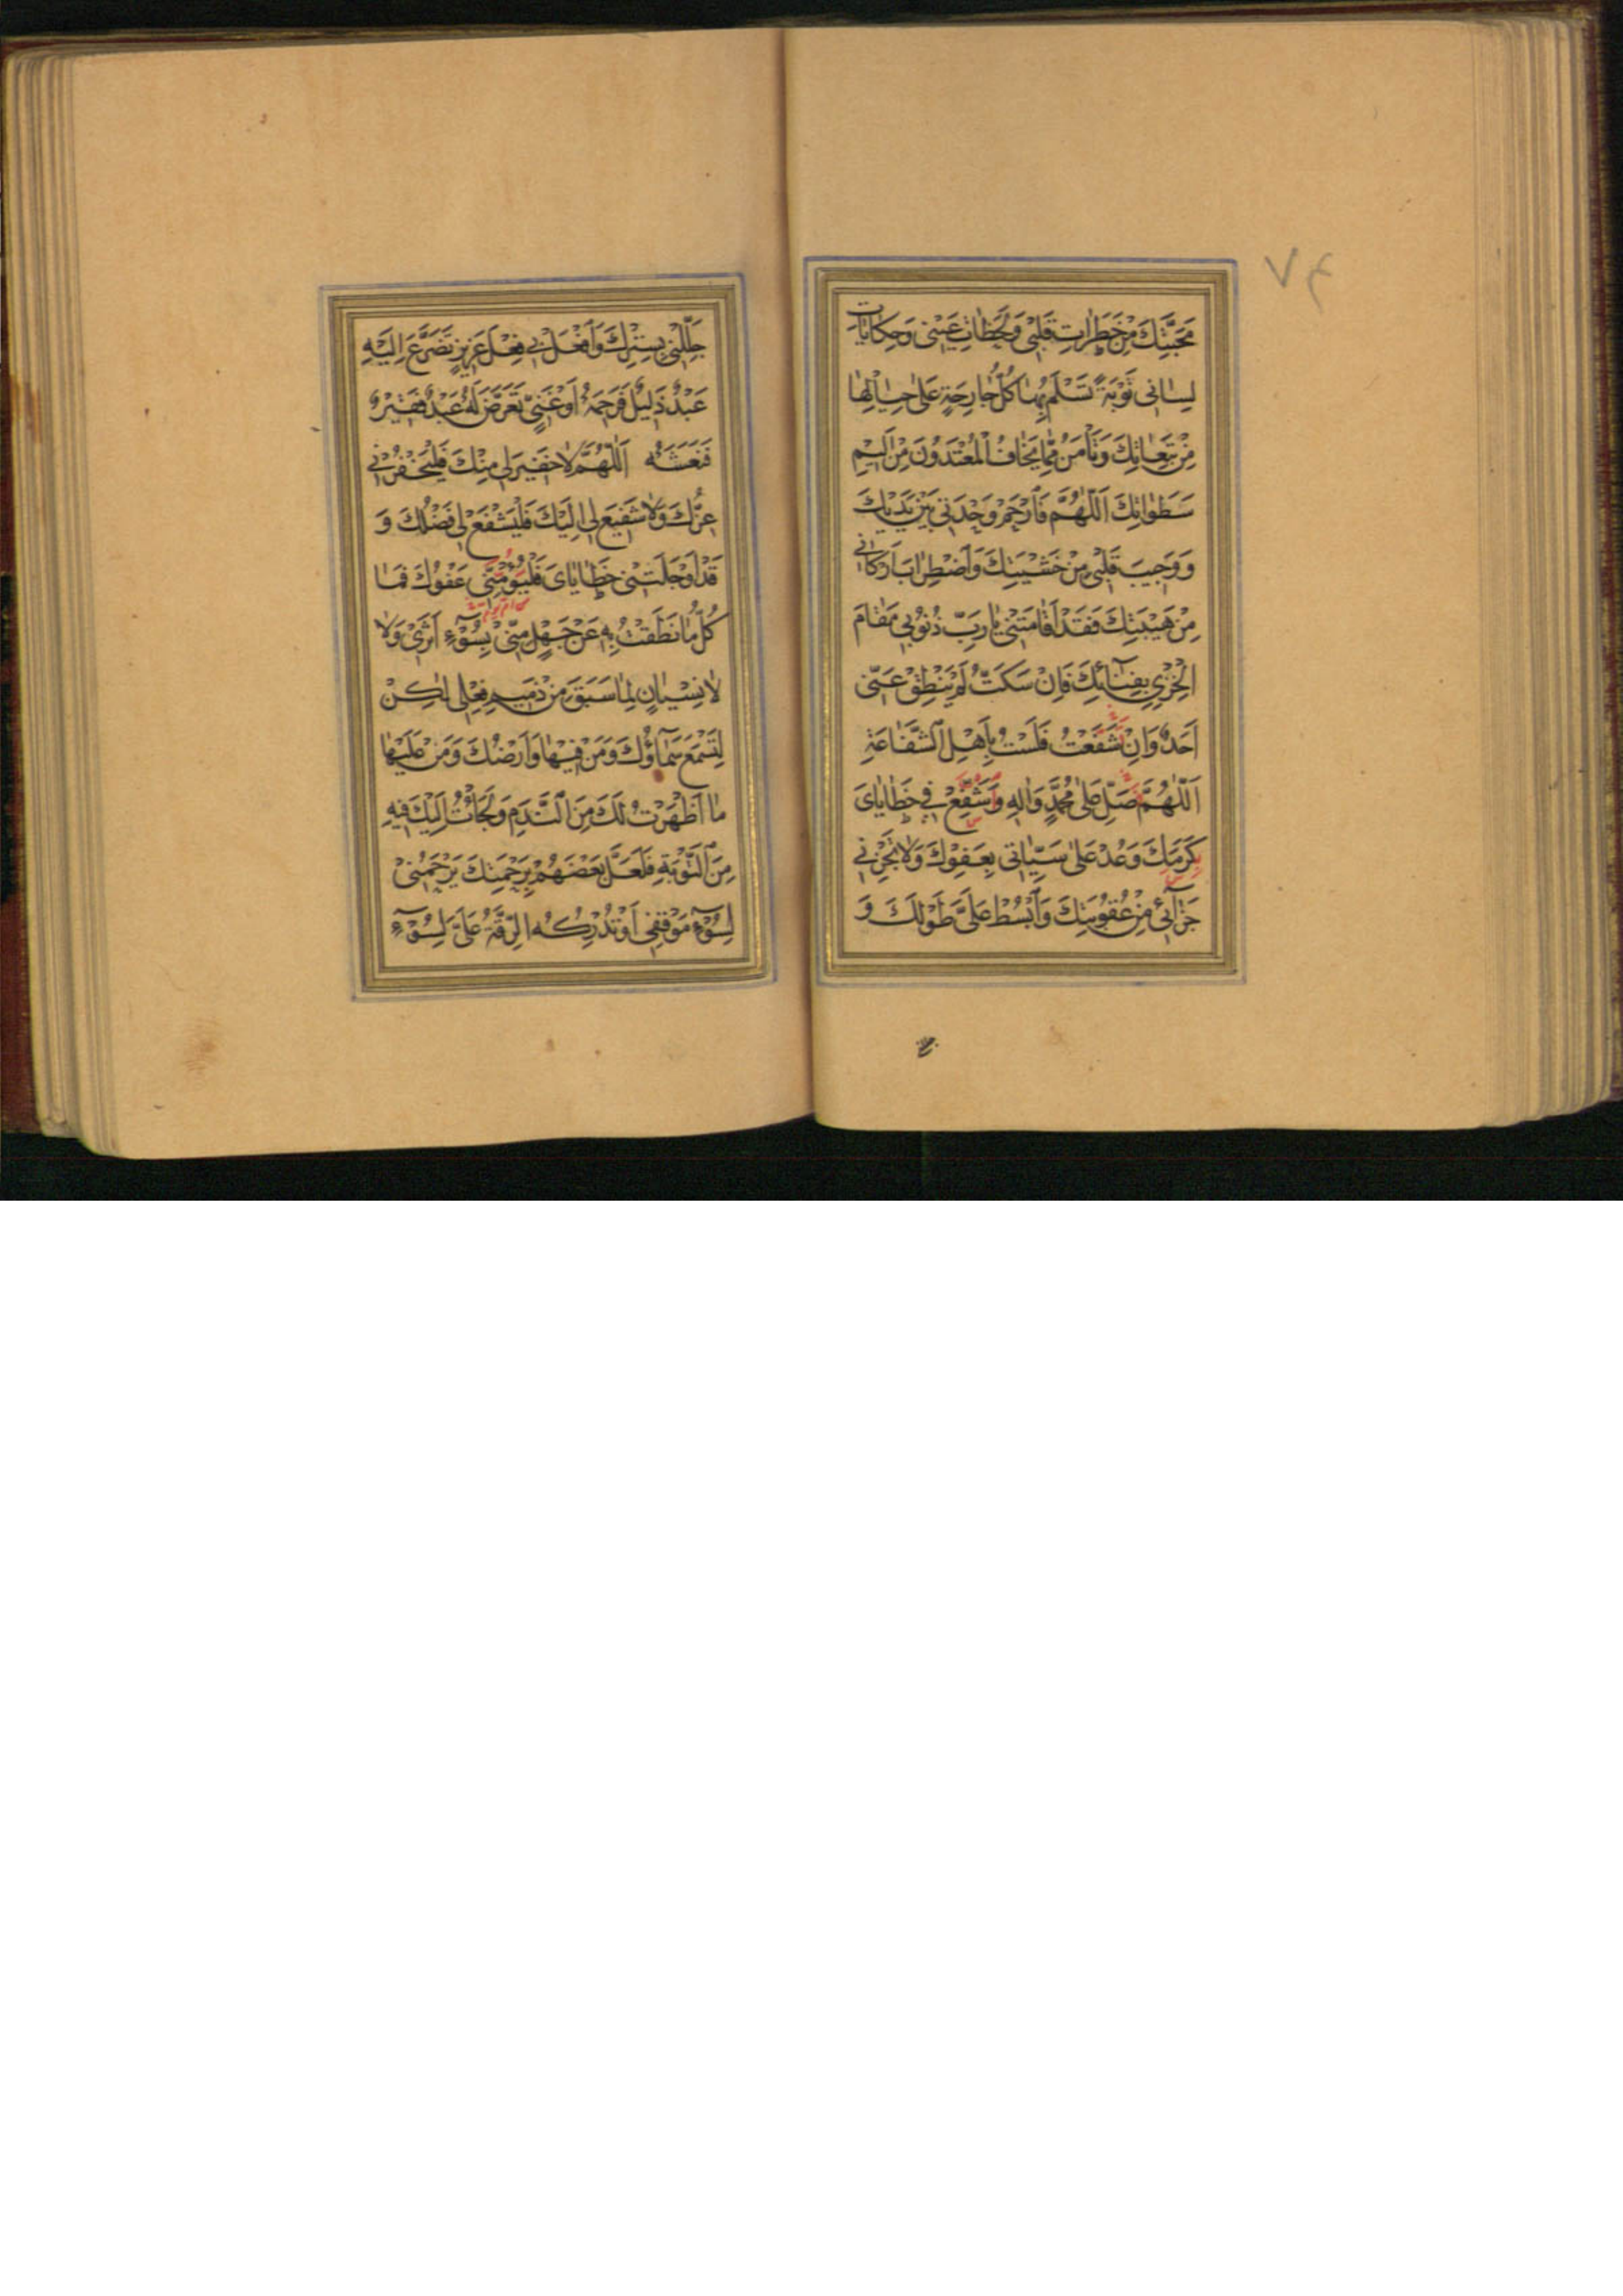 ٧٤
مَحَبَّتِكَ مِنْ خَطَرَاتِ قَلْبِي وَلَحَظَاتِ عَيْنِي وَحِكَايَاتِ
لِسَانِي تَوْبَةً تَسْلَمُ بِهَا كُلُّ جَارِحَةٍ عَلَى حِيَالِهَا
مِنْ تَبِعَاتِكَ وَتَأْمَنُ مِمَّا يَخَافُ الْمُعْتَدُونَ مِنْ أَلِيمِ
سَطَوَاتِكَ اَللّٰهُمَّ فَارْحَمْ وَحْدَتِي بَيْنَ يَدَيْكَ
وَوَجِيبَ قَلْبِي مِنْ خَشْيَتِكَ وَاضْطِرَابَ أَرْكَانِي
مِنْ هَيْبَتِكَ فَقَدْ أَقَامَتْنِي يَا رَبِّ ذُنُوبِي مَقَامَ
الْخِزْيِ بِفِنَائِكَ فَإِنْ سَكَتُّ لَمْ يَنْطِقْ عَنِّي
أَحَدٌ وَإِنْ شَفَعْتُ فَلَسْتُ بِأَهْلِ الشَّفَاعَةِ
اَللّٰهُمَّ صَلِّ عَلَى مُحَمَّدٍ وَآلِهِ وَشَفِّعْ فِي خَطَايَايَ
كَرَمَكَ وَعُدْ عَلَى سَيِّئَاتِي بِعَفْوِكَ وَلَا تَجْزِنِي
جَزَائِي مِنْ عُقُوبَتِكَ وَابْسُطْ عَلَيَّ طَوْلَكَ وَ
جَلِّلْنِي بِسِتْرِكَ وَافْعَلْ بِي فِعْلَ عَزِيزٍ تَضَرَّعَ إِلَيْهِ
عَبْدٌ ذَلِيلٌ فَرَحِمَهُ أَوْ غَنِيٍّ تَعَرَّضَ لَهُ عَبْدٌ فَقِيرٌ
فَنَعَشَهُ اَللّٰهُمَّ لَا خَفِيرَ لِي مِنْكَ فَلْيَخْفُرْنِي
عِزُّكَ وَلَا شَفِيعَ لِي إِلَيْكَ فَلْيَشْفَعْ لِي فَضْلُكَ وَ
قَدْ أَوْجَلَتْنِي خَطَايَايَ فَلْيُؤْمِنِّي عَفْوُكَ فَمَا
كُلُّ مَا نَطَقْتُ بِهِ عَنْ جَهْلٍ مِنِّي بِسُوءِ أَثَرِي وَلَا
لَا نِسْيَانٍ لِمَا سَبَقَ مِنْ ذَمِيمِ فِعْلِي لٰكِنْ
لِتَسْمَعَ سَمَاؤُكَ وَمَنْ فِيهَا وَأَرْضُكَ وَمَنْ عَلَيْهَا
مَا أَظْهَرْتُ لَكَ مِنَ النَّدَمِ وَلَجَأْتُ إِلَيْكَ فِيهِ
مِنَ التَّوْبَةِ فَلَعَلَّ بَعْضَهُمْ بِرَحْمَتِكَ يَرْحَمُنِي
لِسُوءِ مَوْقِفِي أَوْ تُدْرِكُهُ الرِّقَّةُ عَلَيَّ لِسُوءِ